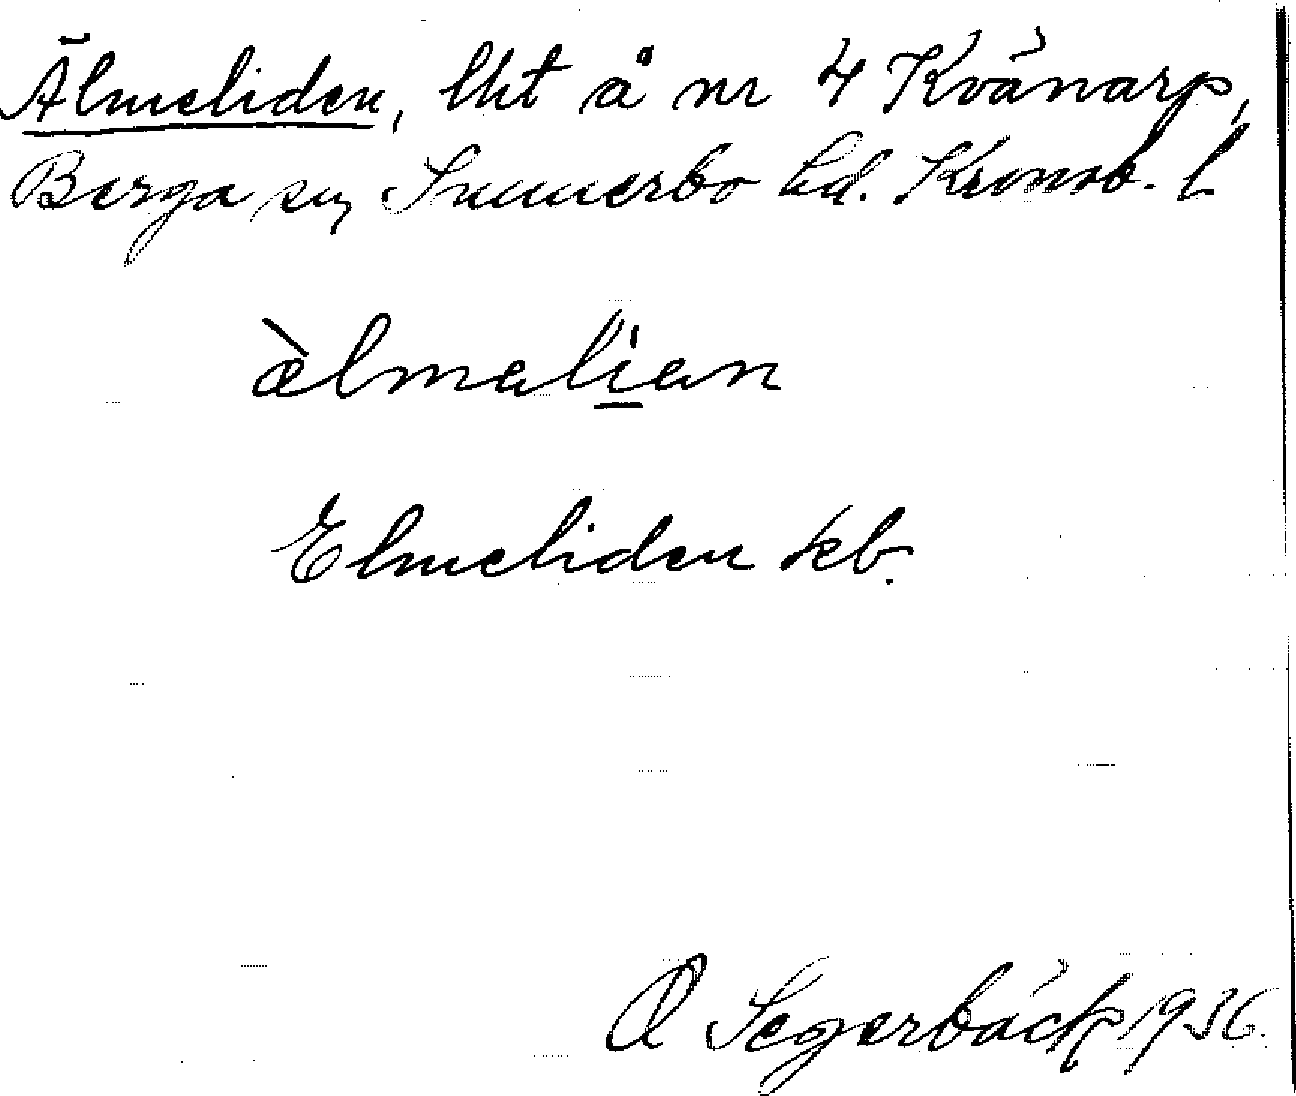 Älmeliden, lht å nr 4 Kvänarp,
Berga sn, Sunnerbo hd. Kronob. l
æ̀lmalian
Elmeliden kb.
O Segerbäck 1936.